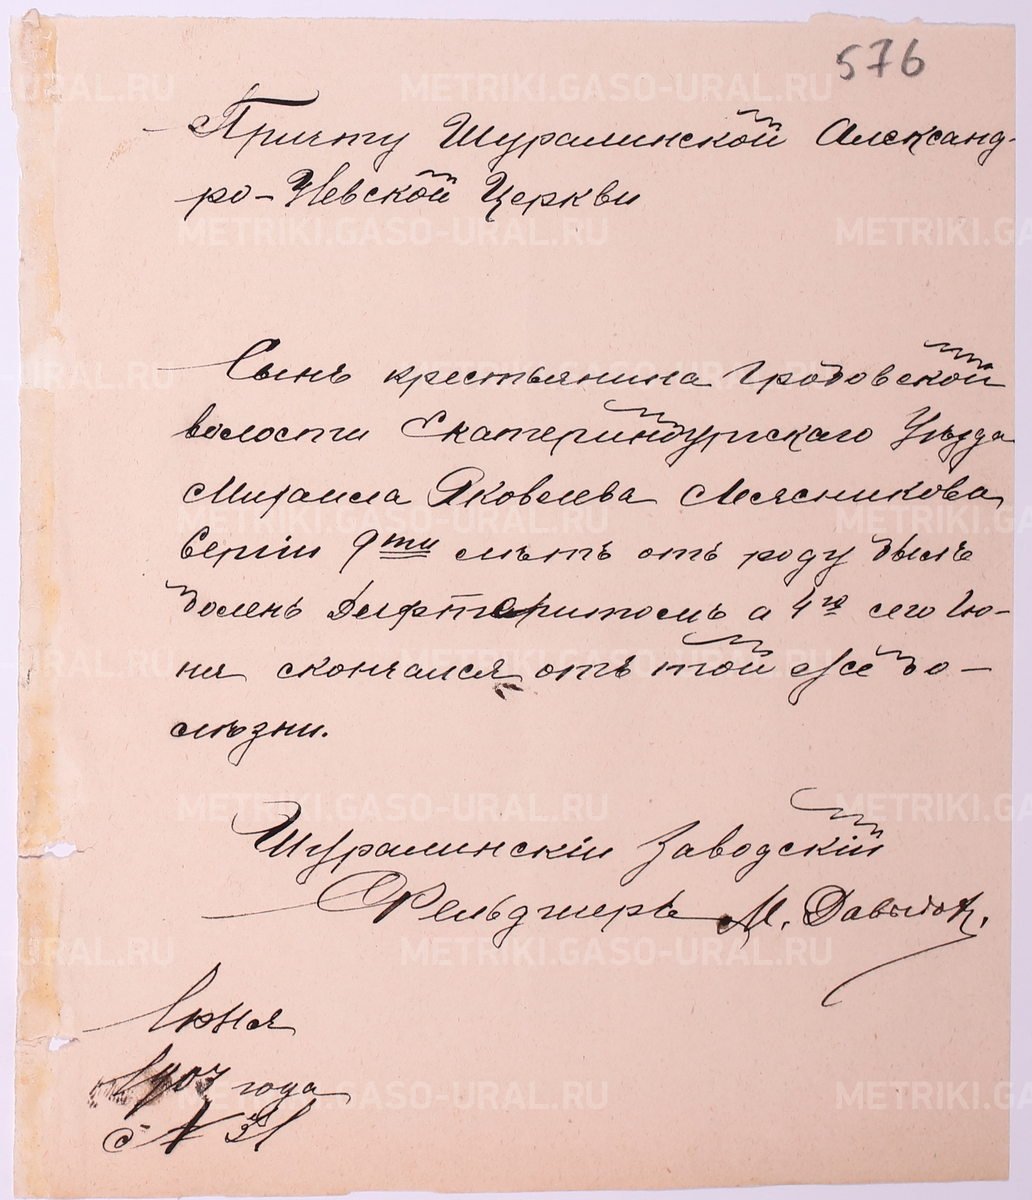 576
Причту Шуралинской Александ-
ро-Невской Церкви
Сынъ крестьянина Гробовской
волости Екатеринбургскаго Уѣзда
Михаила Яковлева Мясникова
Сергѣй 9ти лѣтъ отъ роду былъ
боленъ Дифтеритомъ а 4го сего Iю-
ня скончался отъ той же бо-
лѣзни.
Шуралинскiй Заводскiй
Фельдшеръ М. Давыдов.
Iюня
1907 года
№
METRIKI.GASO-URAL.RU